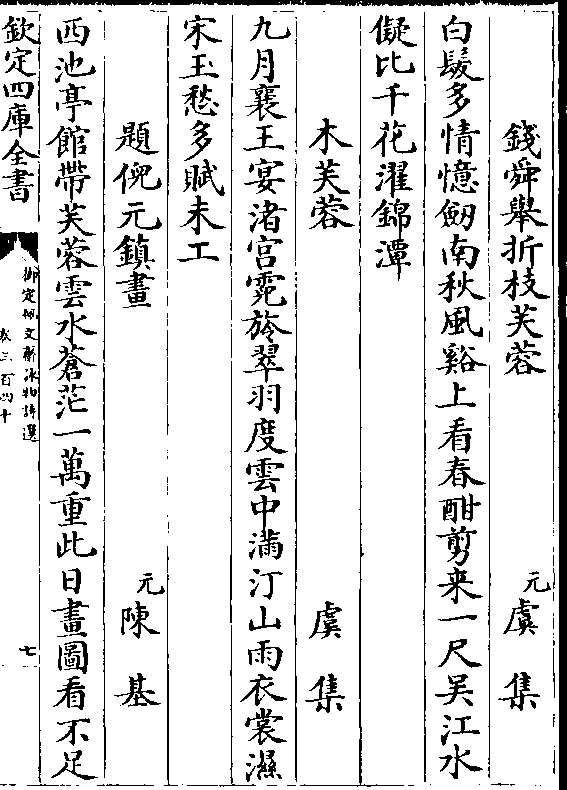 錢舜舉折枝芙蓉 元 虞集
白髮多情憶劒南秋風谿上看春酣剪来一尺吴江水
儗比千花濯錦潭
木芙蓉 虞集
九月襄王宴渚宫霓旍翠羽度雲中滿汀山雨衣裳濕
宋玉愁多賦未工
題倪元鎮畫 元 陳基
西池亭館帶芙蓉雲水蒼茫一萬重此日畫圖看不足
欽定四庫全書
御定佩文齋詠物詩選
卷三百四十
七